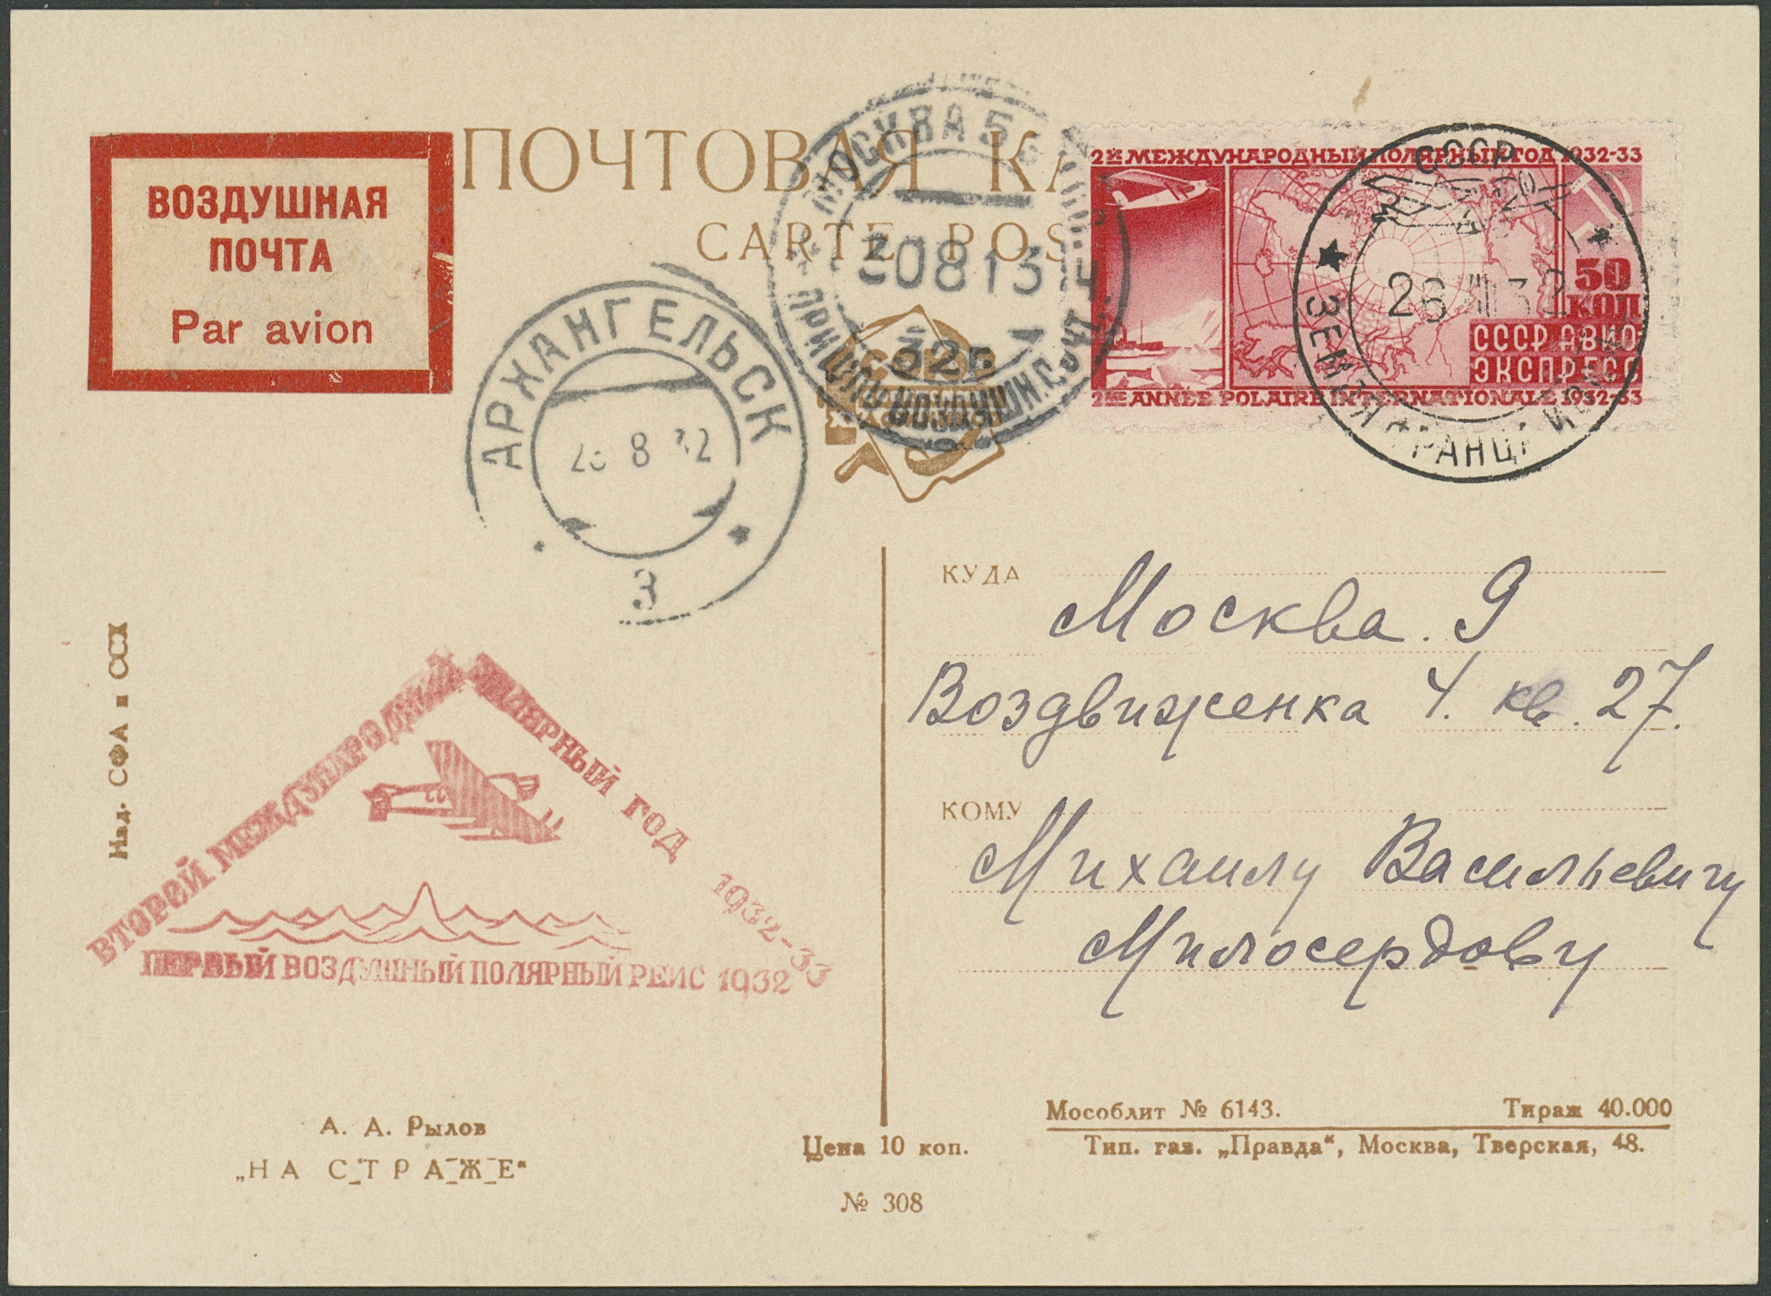 ПОЧТОВАЯ КА
CARTE POS
ВОЗДУШНАЯ
ПОЧТА
Par avion
МОСКВА 5
30813 Ч
32Г
АРХАНГЕЛЬСК
8
3
2й МЕЖДУНАРОДНЫЙ ПОЛЯРНЫЙ ГОД 1932-33
50
КОП
СССР АВИО-
ЭКСПРЕСС
2me ANNÉE POLAIRE INTERNATIONALE 1932-33
СССР
26 VIII 32
ЗЕМЛЯ ФРАНЦА ИОСИФА
КУДА
Москва. 9
Воздвиженка 4. кв. 27.
КОМУ
Михаилу Васильевичу
Милосердову
Изд. СФА и ССХ
ВТОРОЙ МЕЖДУНАРОДНЫЙ ПОЛЯРНЫЙ ГОД 1932-33
ПЕРВЫЙ ВОЗДУШНЫЙ ПОЛЯРНЫЙ РЕЙС 1932
А. А. Рылов
„НА СТРАЖЕ“
Цена 10 коп.
№ 308
Мособлит № 6143. Тираж 40.000
Тип. газ. „Правда“, Москва, Тверская, 48.